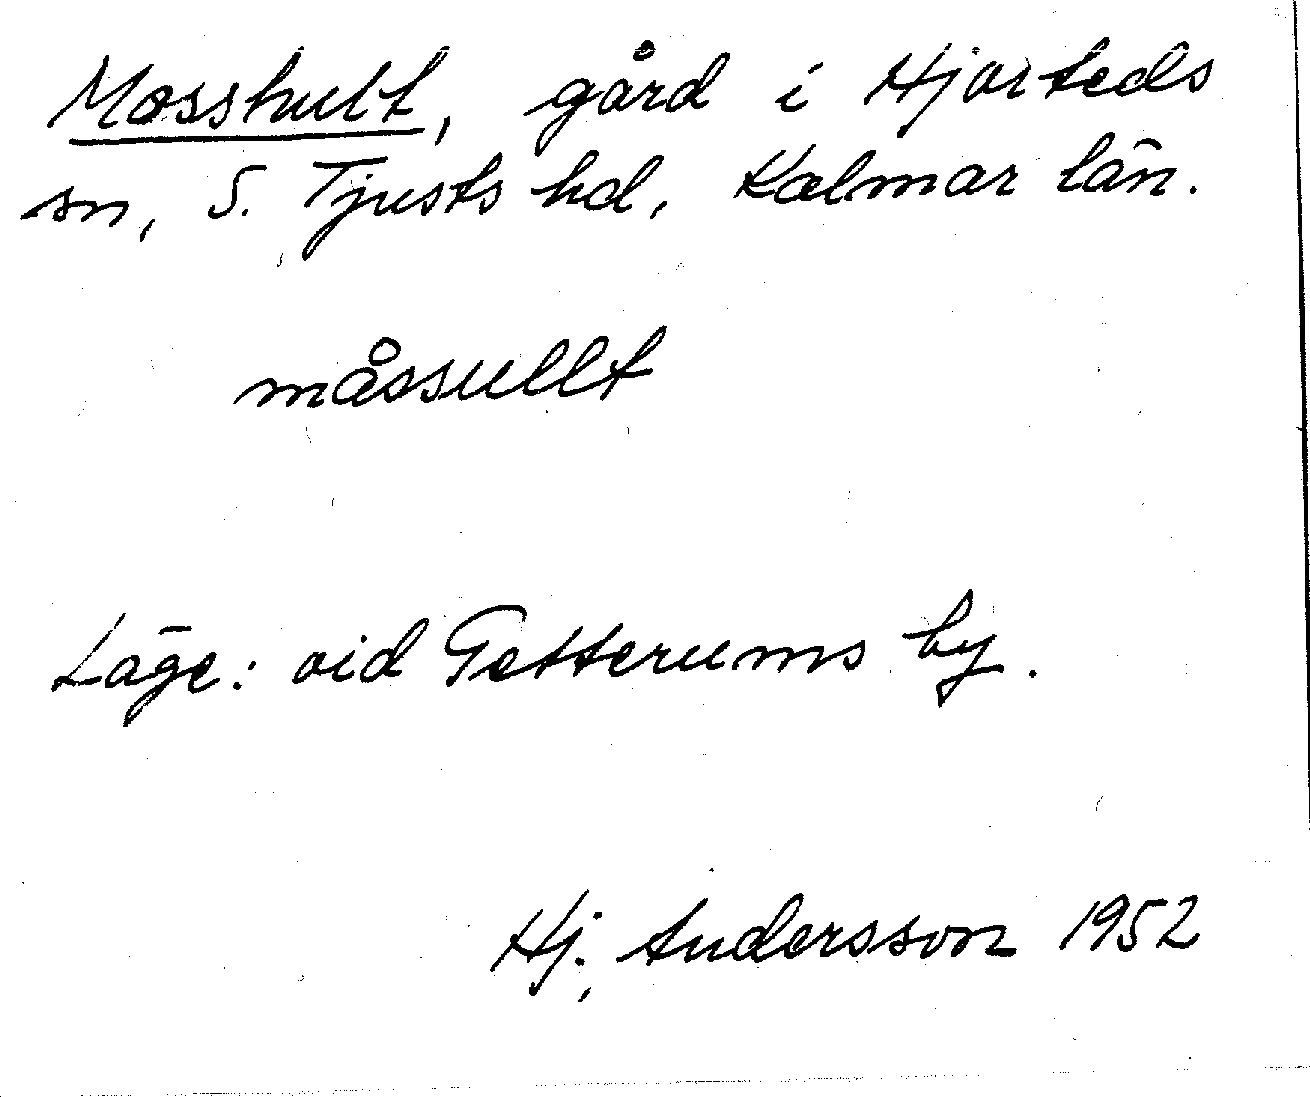 Mosshult, gård i Hjorteds
sn, S. Tjusts hd, Kalmar län.
måssullt
Läge: vid Totterums by.
Hj. Andersson 1952